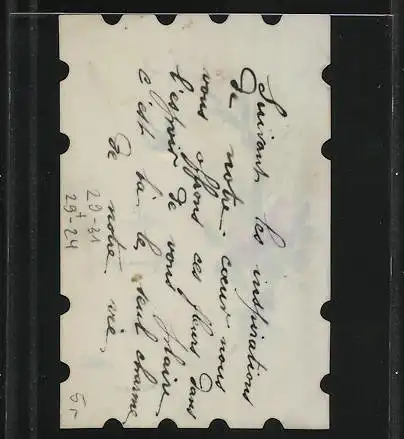 Suivant les inspirations
De notre cœur nous
vous offrons ces fleurs dans
l'espoir de vous plaire.
C'est là le seul charme
De notre vie.
29-31
+
29-24
5-